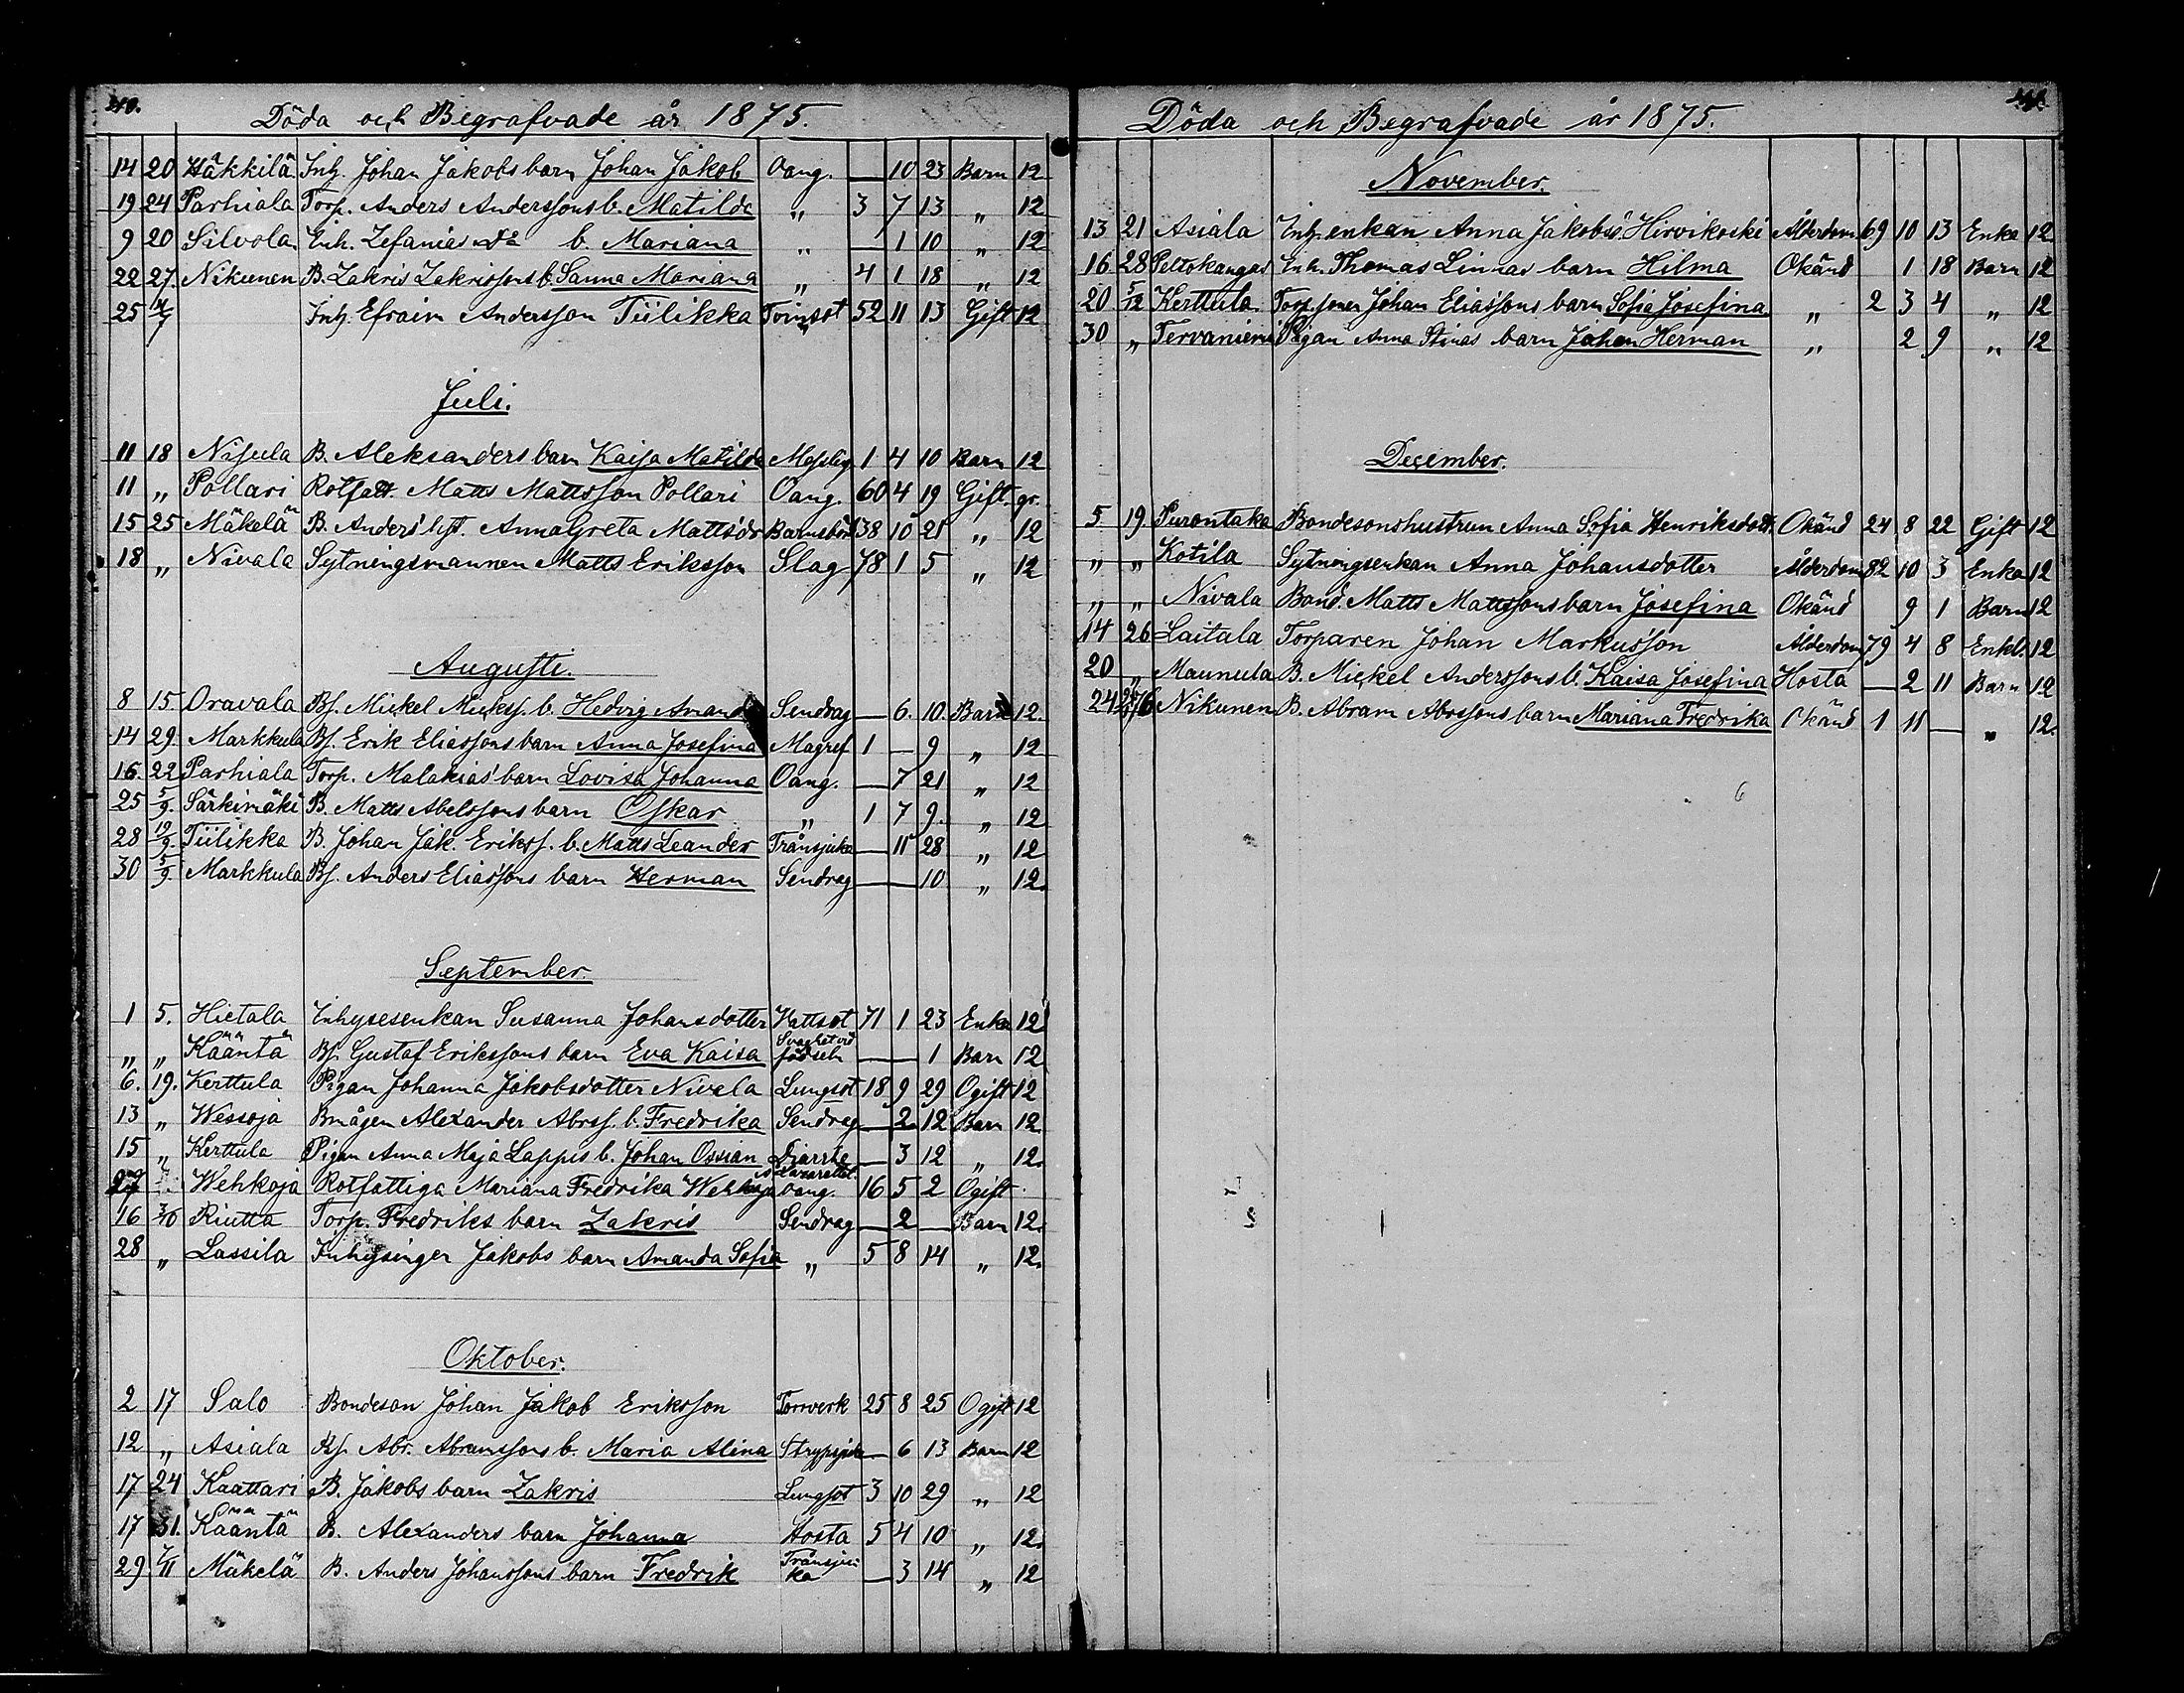 40.
Döda och Begrafvade år 1875.
14 20 Häkkilä Inh. Johan Jakobs barn Johan Jakob Oang. — 10 23 Barn 12
19 24 Parhiala Torp. Anders Anderssons b. Matilda „ 3 7 13 „ 12
9 20 Silvola Enh. Zefanias b. Mariana „ — 1 10 „ 12
22 27. Nikunen B. Zakris Zakrissons b. Sanna Mariana „ 4 1 18 „ 12
25 4/7 Inh. Efraim Andersson Tiilikka Tvinsot 52 11 13 Gift 12
Juli.
11 18 Nisula B. Aleksanders barn Kaisa Matilda Messling 1 4 10 Barn 12
11 „ Pollari Rotfatt. Matts Mattsson Pollari Oang. 60 4 19 Gift gr.
15 25 Mäkelä B. Anders hst. Anna Greta Mattsdr Barnsbörd 38 10 21 „ 12
18 „ Nivala Sytningsmannen Matts Eriksson Slag 78 1 5 „ 12
Augusti.
8 15 Oravala Bs. Mickel Micks. b. Hedvig Amanda Sendrag — 6. 10. Barn 12.
14 29. Markkula Bs. Erik Eliassons barn Anna Josefina Magref 1 — 9 „ 12
16. 22 Parhiala Torp. Malakias barn Lovisa Johanna Oang. — 7 21 „ 12
25 5/9. Särkimäki B. Matts Abelssons barn Oskar „ 1 7 9. „ 12
28 19/9. Tiilikka B. Johan Jak. Erikss. b. Matts Leander Trånsjuka — 11 28 „ 12
30 5/9. Markkula Bs. Anders Eliassons barn Herman Sendrag — — 10 „ 12.
September.
1 5. Hietala Inhysesenkan Susanna Johansdotter Vattsot 71 1 23 Enka 12
„ „ Kääntä Bs. Gustaf Erikssons barn Eva Kaisa Svaghet vid födseln — — 1 Barn 12
6. 19. Kerttula Pigan Johanna Jakobsdotter Nivala Lungsot 18 9 29 Ogift 12
13 „ Wessoja Bmågen Alexander Abrss. b. Fredrika Sendrag — 2 12 Barn 12
15 „ Kerttula Pigan Anna Maja Lappis b. Johan Ossian Diarrhe — 3 12 „ 12.
27 Wehkoja Rotfattiga Mariana Fredrika Wehkoja å Lazarettet oang. 16 5 2 Ogift
16 3/10 Riutta Torp. Fredriks barn Zakris Sendrag — 2 — Barn 12.
28 „ Lassila Inhysingen Jakobs barn Amanda Sofia „ 5 8 14 „ 12.
Oktober.
2 17 Salo Bondeson Johan Jakob Eriksson Torrverk 25 8 25 Ogift 12
12 „ Asiala Bs. Abr. Abramssons b. Maria Alina Strypsjuka — 6 13 Barn 12
17 24 Kaattari B. Jakobs barn Zakris Lungsot 3 10 29 „ 12
17 31. Kääntä B. Alexanders barn Johanna Hosta 5 4 10 „ 12.
29. 7/11 Mäkelä B. Anders Johanssons barn Fredrik Trånsjuka — 3 14 „ 12
41.
Döda och Begrafvade år 1875.
November.
13 21 Asiala Inh. enkan Anna Jakobsd. Hirvikoski Ålderdom 69 10 13 Enka 12.
16 28 Peltokangas Enh. Thomas Linnas barn Hilma Okänd 1 18 Barn 12
20 5/12 Kerttula Torp. sonen Johan Eliassons barn Sofia Josefina „ 2 3 4 „ 12
30 „ Tervaniemi Pigan Anna Stinas barn Johan Herman „ 2 9 „ 12
December.
5 19 Purontaka Bondesonshustrun Anna Sofia Henriksdott. Okänd 24 8 22 Gift 12
„ „ Kotila Sytningsenkan Anna Johansdotter Ålderdom 82 10 3 Enka 12
„ „ Nivala Bond. Matts Mattssons barn Josefina Okänd 9 1 Barn 12
14 26 Laitala Torparen Johan Markusson Ålderdom 79 4 8 Enkl. 12
20 „ Maunula B. Mickel Anderssons b. Kaisa Josefina Hosta — 2 11 Barn 12
24 Nikunen B. Abram Abrssons barn Mariana Fredrika Okänd 1 11 — „ 12.